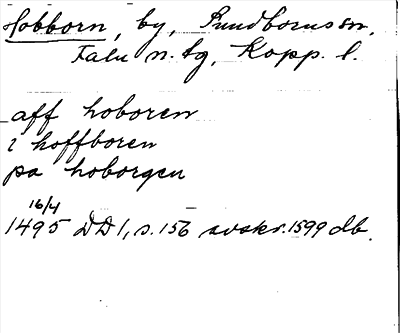 Hobborn, by, Sundborns sn,
Falu n. tg, Kopp. l.
aff hoboren
i hoffboren
pa hoborgen
16/4
1495 DD 1, s. 156 avskr. 1599 db.